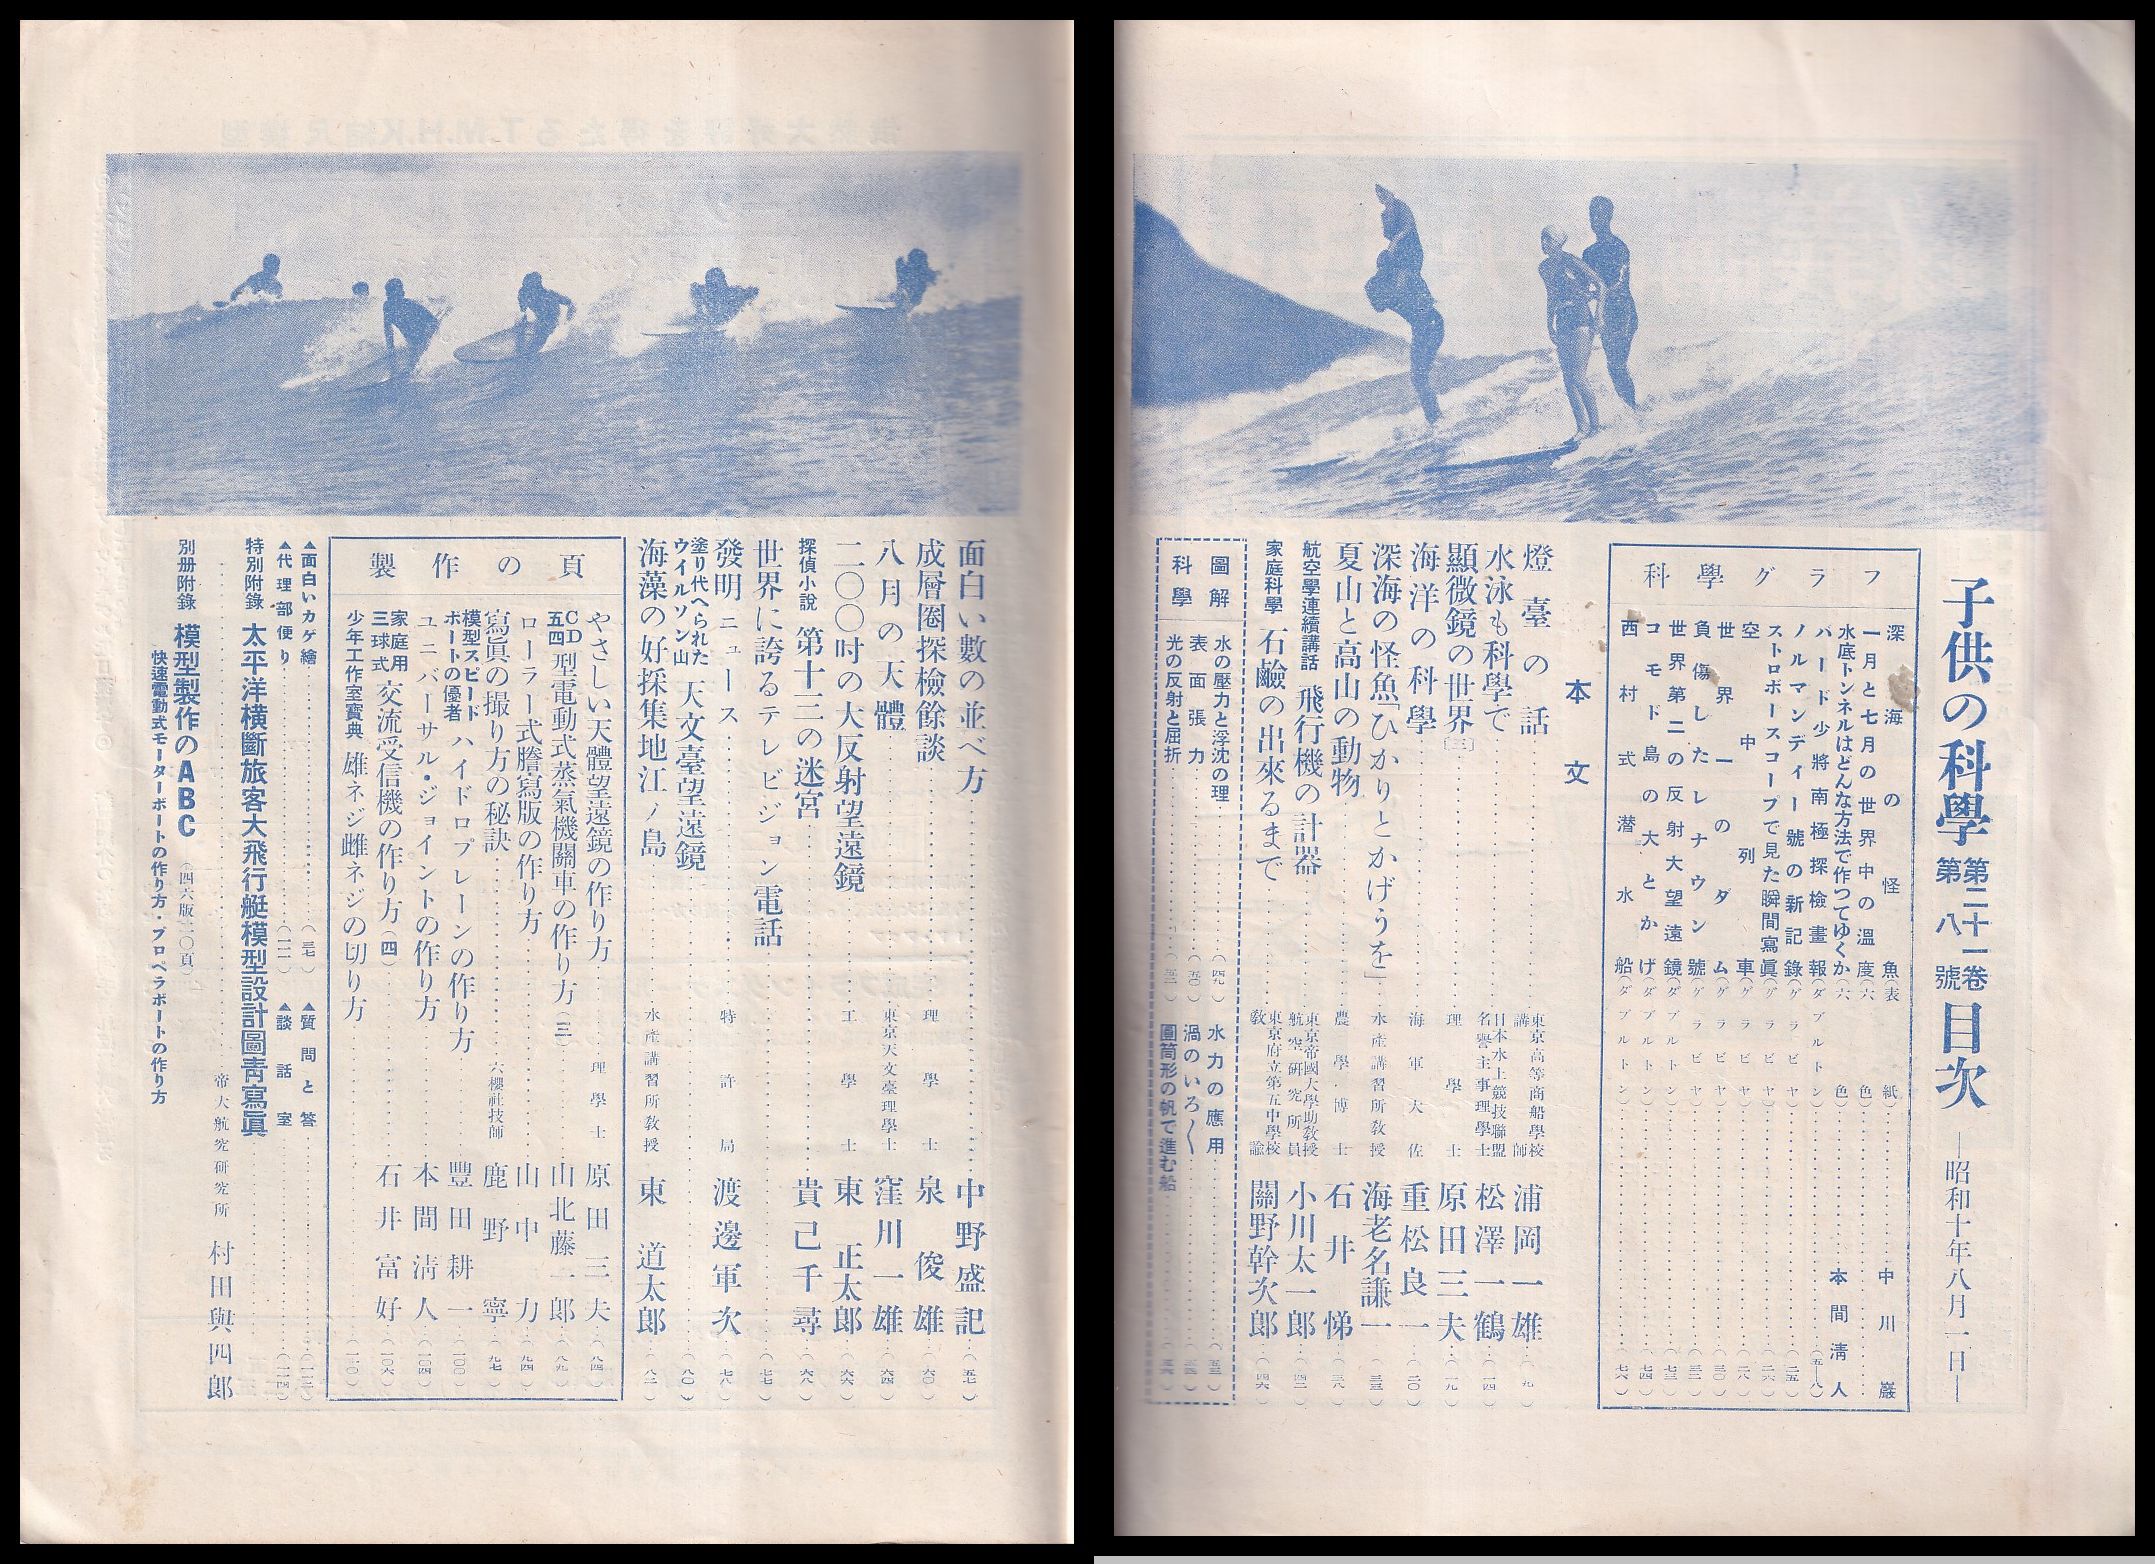 子供の科學 第二十一卷 第八號 目次 ―昭和十年八月一日―
科學グラフ
深海の怪魚(表紙)……中川巖
一月と七月の世界中の溫度(六色)
水底トンネルはどんな方法で作つてゆくか(六色)……本間淸人
バード少將南極探檢畫報(ダブルトン)……(五―八)
ノルマンディー號の新記錄(グラビヤ)……(二五)
ストロボースコープで見た瞬間寫眞(グラビヤ)……(二六)
空中列車(グラビヤ)……(二八)
世界一のダム(グラビヤ)……(三〇)
負傷したレナウン號(グラビヤ)……(三二)
世界第二の反射大望遠鏡(ダブルトン)……(七三)
コモド島の大とかげ(ダブルトン)……(七四)
西村式潛水船(ダブルトン)……(七六)
本文
燈臺の話……東京高等商船學校講師 浦岡一雄…(九)
水泳も科學で……日本水上競技聯盟名譽主事理學士 松澤一鶴…(一四)
顯微鏡の世界〔三〕……理學士 原田三夫…(一九)
海洋の科學……海軍大佐 重松良一…(二〇)
深海の怪魚「ひかりとかげうを」……水產講習所敎授 海老名謙一…(三三)
夏山と高山の動物……農學博士 石井悌…(三八)
航空學連續講話 飛行機の計器……東京帝國大學助敎授航空硏究所員 小川太一郎…(四二)
家庭科學 石鹼の出來るまで……東京府立第五中學校敎諭 關野幹次郎…(四六)
圖解科學
水の壓力と浮沈の理……(四九)
表面張力……(五〇)
光の反射と屈折……(五二)
水力の應用……(五三)
渦のいろ〳〵……(五四)
圓筒形の帆で進む船……(五六)
面白い數の並べ方……中野盛記…(五七)
成層圈探檢餘談……理學士 泉俊雄…(六〇)
八月の天體……東京天文臺理學士 窪川一雄…(六四)
二〇〇吋の大反射望遠鏡……工學士 東正太郎…(六六)
探偵小說 第十三の迷宮……貴己千尋…(六八)
世界に誇るテレビジョン電話……(七七)
發明ニュース……特許局 渡邊軍次…(七八)
塗り代へられたウイルソン山 天文臺望遠鏡……(八〇)
海藻の好採集地江ノ島……水產講習所敎授 東道太郎…(八二)
製作の頁
やさしい天體望遠鏡の作り方……理學士 原田三夫…(八四)
CD五四型電動式蒸氣機關車の作り方(二)……山北藤一郎…(八九)
ローラー式謄寫版の作り方……山中力…(九四)
寫眞の撮り方の秘訣……六櫻社技師 鹿野寧…(九七)
模型スピードボートの優者 ハイドロプレーンの作り方……豐田耕一…(一〇〇)
ユニバーサル・ジョイントの作り方……本間淸人…(一〇四)
家庭用三球式 交流受信機の作り方(四)……石井富好…(一〇六)
少年工作室寶典 雄ネジ雌ネジの切り方……(一一〇)
▲面白いカゲ繪……(三七) ▲質問と答……(一一三)
▲代理部便り……(一一一) ▲談話室……(一一四)
特別附錄 太平洋橫斷旅客大飛行艇模型設計圖靑寫眞……
……帝大航究硏究所 村田與四郎
別册附錄 模型製作のABC(四六版一一〇頁)
快速電動式モーターボートの作り方・プロペラボートの作り方